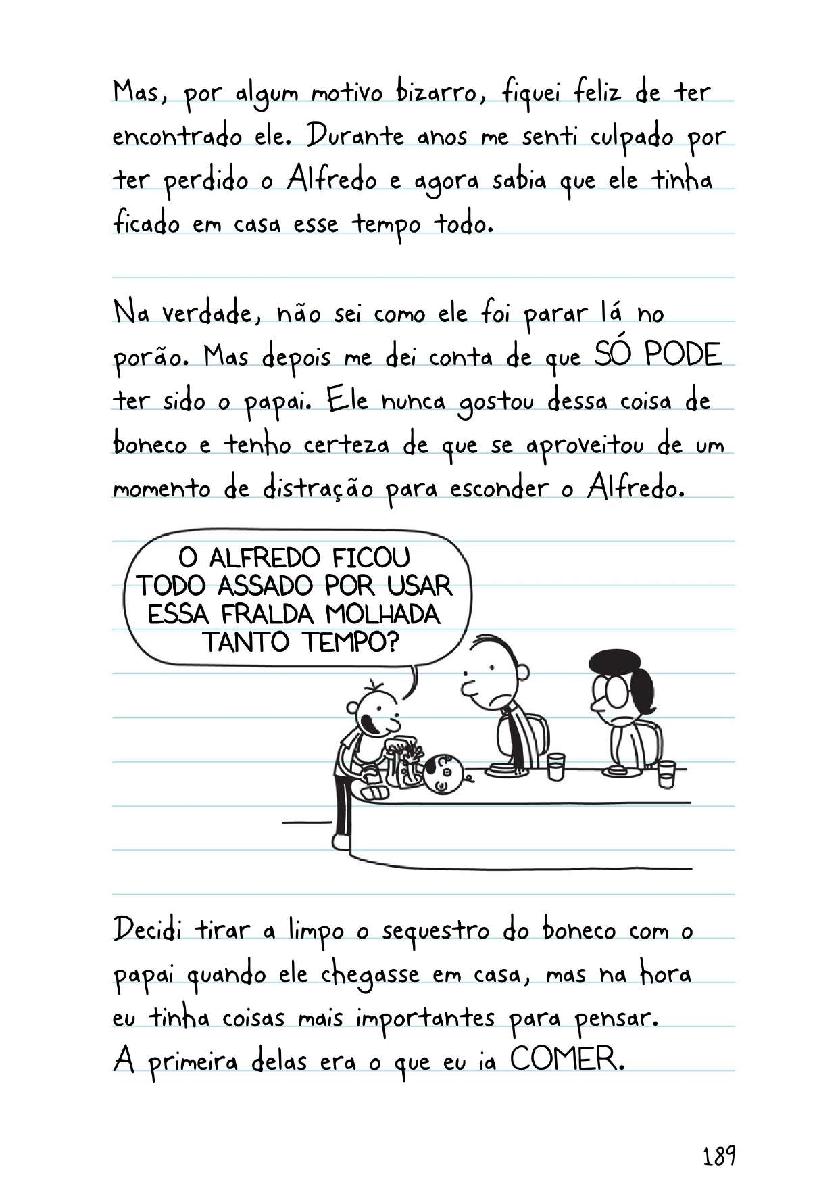 Mas, por algum motivo bizarro, fiquei feliz de ter
encontrado ele. Durante anos me senti culpado por
ter perdido o Alfredo e agora sabia que ele tinha
ficado em casa esse tempo todo.
Na verdade, não sei como ele foi parar lá no
porão. Mas depois me dei conta de que SÓ PODE
ter sido o papai. Ele nunca gostou dessa coisa de
boneco e tenho certeza de que se aproveitou de um
momento de distração para esconder o Alfredo.
O ALFREDO FICOU
TODO ASSADO POR USAR
ESSA FRALDA MOLHADA
TANTO TEMPO?
Decidi tirar a limpo o sequestro do boneco com o
papai quando ele chegasse em casa, mas na hora
eu tinha coisas mais importantes para pensar.
A primeira delas era o que eu ia COMER.
189